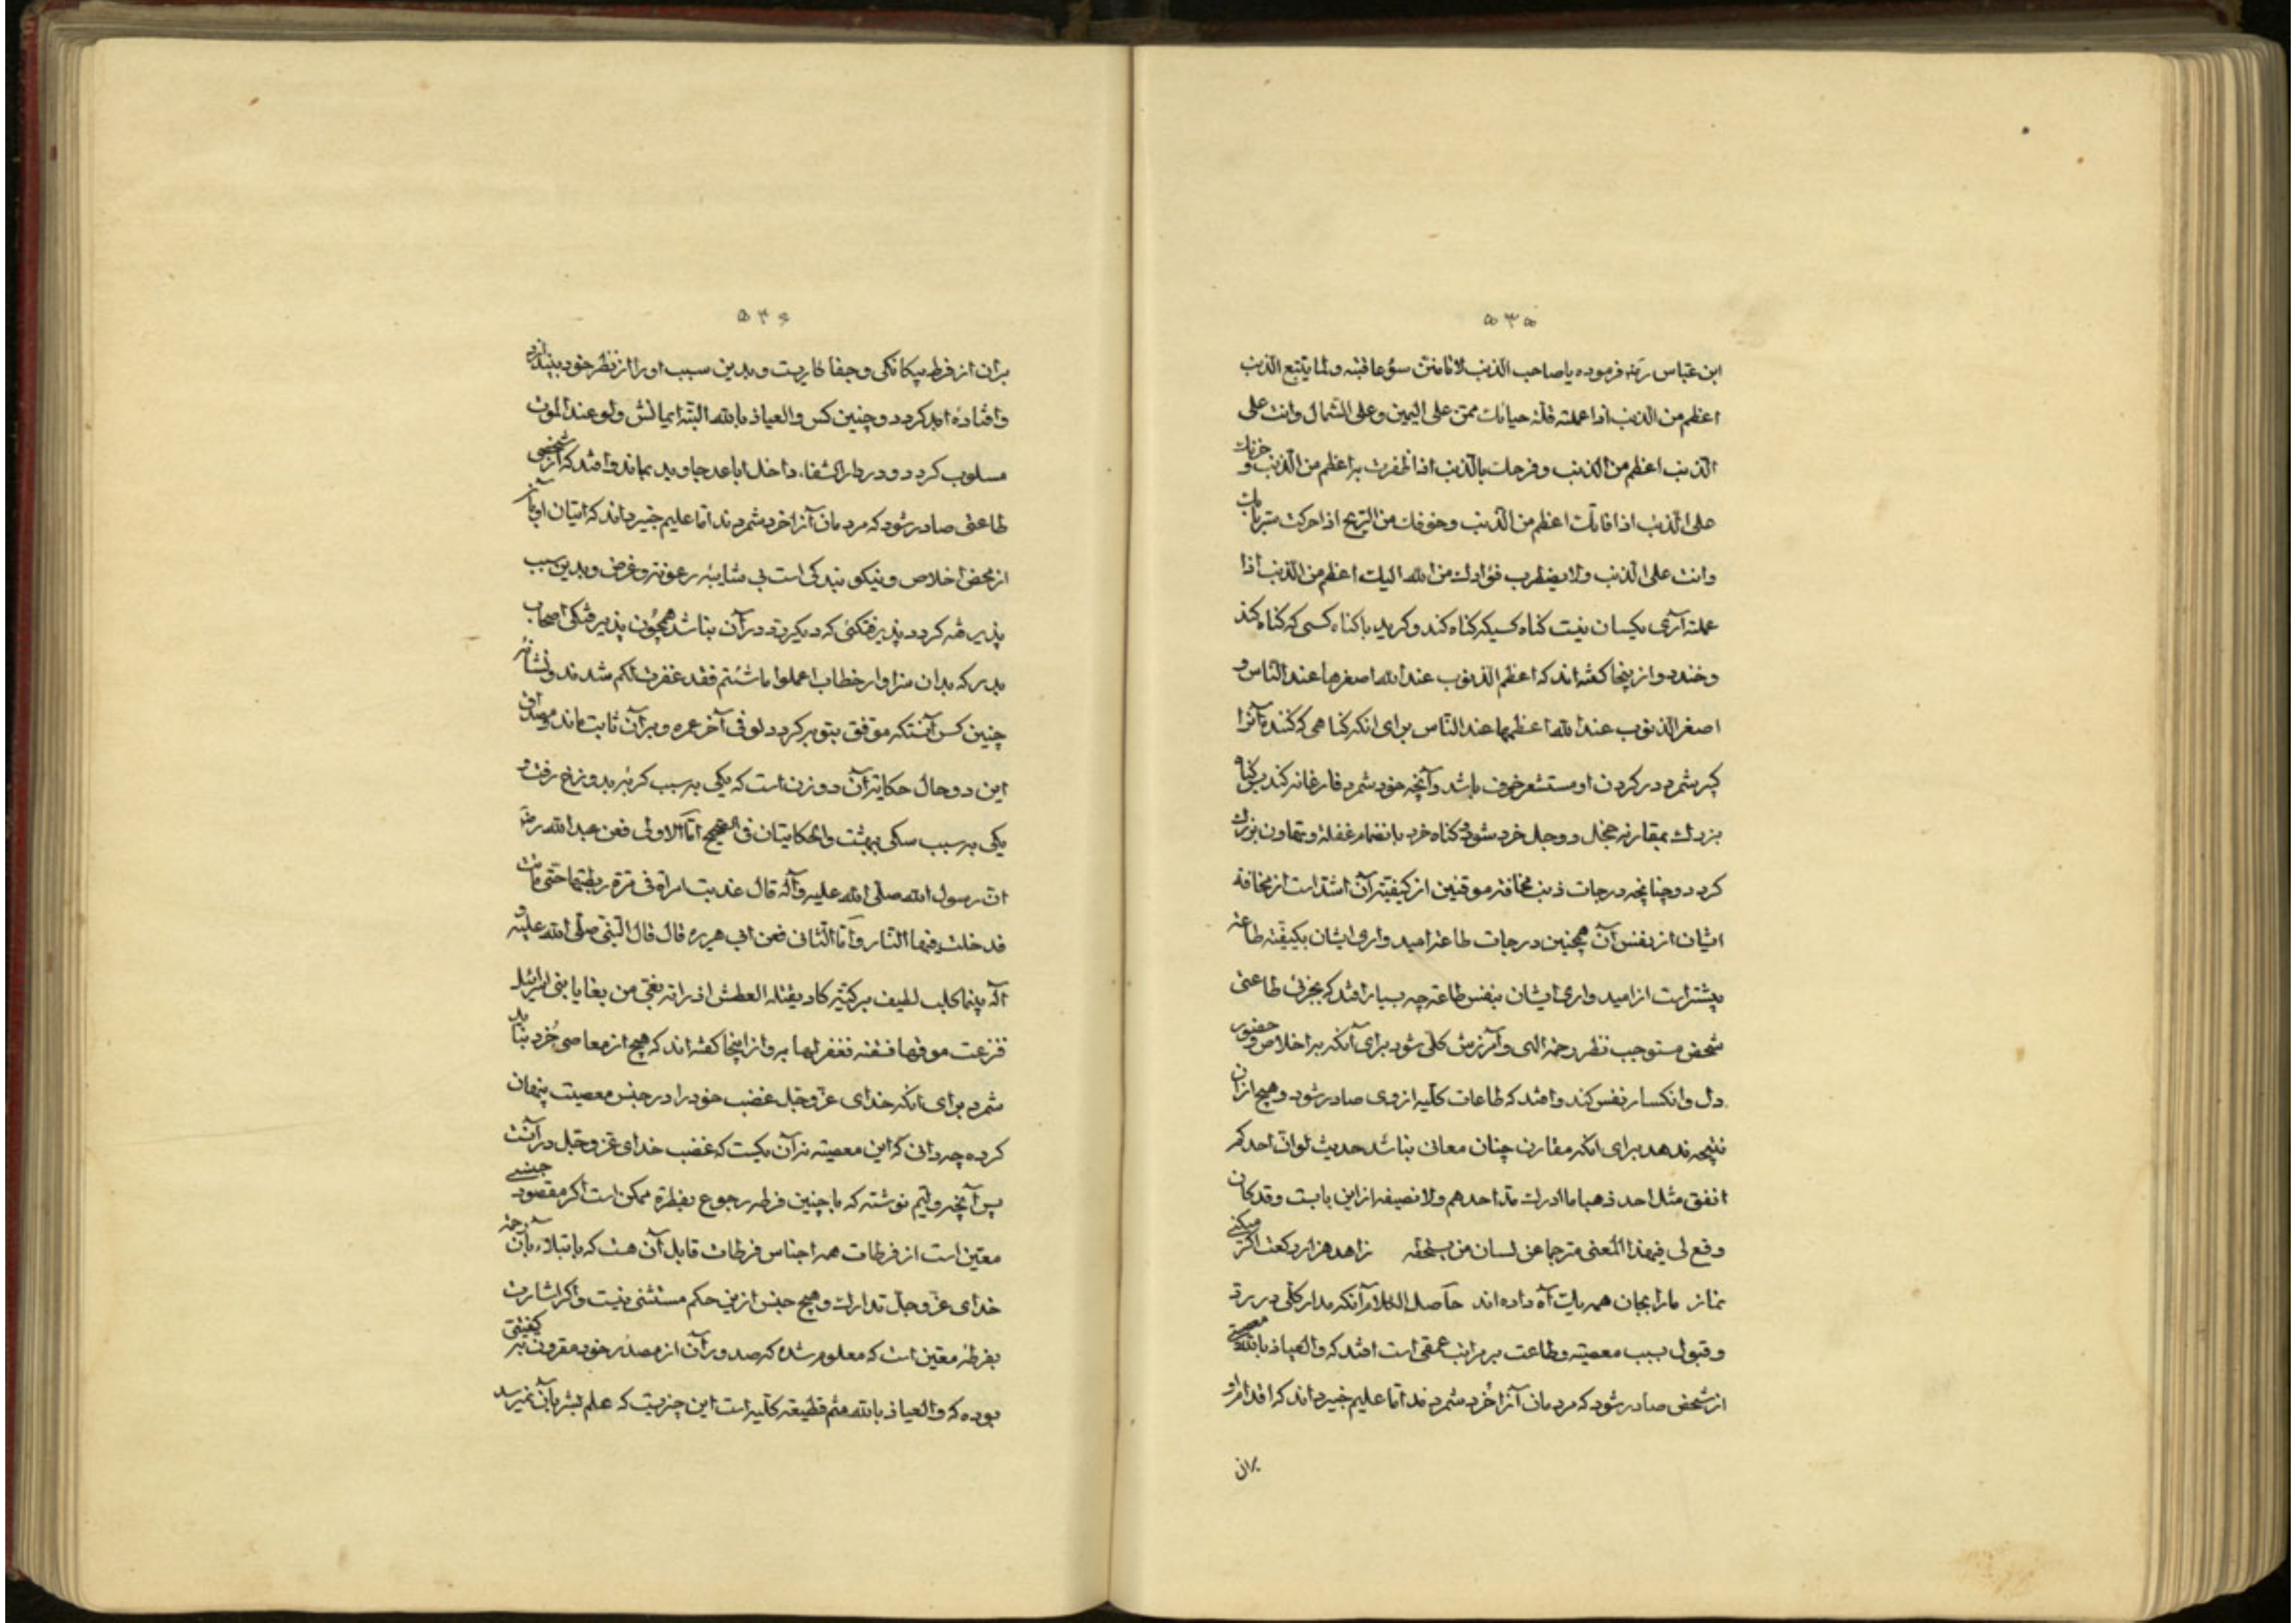 ۵۳۵
ابن عباس رض فرموده یا صاحب الذنب لا تامنن سوء عاقبته و لما یتبع الذنب
اعظم من الذنب اذا عملته قلة حیائک ممن علی الیمین و علی الشمال و انت علی
الذنب اعظم من الذنب و فرحک بالذنب اذا ظفرت به اعظم من الذنب و حزنک
علی الذنب اذا فاتک اعظم من الذنب و خوفک من الریح اذا حرکت ستر بابک
و انت علی الذنب و لا یضطرب فؤادک من الله الیک اعظم من الذنب اذا
عملته آری یکسان نیست کناه کسیکه کناه کند و کرید با کناه کسی که کناه کند
و خندد و از ینجا کفته اند که اعظم الذنوب عند الله اصغرها عند الناس و
اصغر الذنوب عند الله اعظمها عند الناس برای انکه کناهی که کننده آنرا
کبیر شمرد در کردن او مستشعر خوف باشد و آنچه خود شمرد فارغانه کند پس کناه
بزرک بمقارنه خجل و وجل خرد شود و کناه خرد بانضمام غفلة و تهاون بزرک
کردد و چنانچه درجات ذنب مخافة موقنین از کیفیة آن اشد است از مخافة
ایشان از نفس آن همچنین درجات طاعة امید واری ایشان بکیفیة طاعة
بیشتر است از امید واری ایشان بنفس طاعة چه بسیار افتد که بجزئی طاعتی
شخص مستوجب نظر رحمة الهی و آمرزش کلی شود برای آنکه به اخلاص و حضور
دل و انکسار نفس کند و افتد که طاعات کلیه از وی صادر شود و هیچ از ان
نتیجه ندهد برای انکه مقارن چنان معانی نباشد حدیث لو ان احدکم
انفق مثل احد ذهبا ما ادرک مد احدهم و لا نصیفه از این بابست و قد کان
وقع لی فی هذا المعنی مترجما عن لسان من یستحقه زاهد هزار رکعت اکر میکنی
نماز ما را بجان همه یک آه داده اند حاصل الکلام آنکه مدار کلی در رد
و قبول بسبب معصیة و طاعت بر مراتب عمقی است افتد که و العیاذ بالله معصیتی
از شخص صادر شود که مردمان آنرا خرد شمردند اما علیم خبیر داند که اقدام او
بران
۵۳۶
بران از فرط بیکانکی و جفا کاریست و بدین سبب او را از نظر خود بیندازد
و افتاده ابد کردد و چنین کس و العیاذ بالله البته ایمانش ولو عند الموت
مسلوب کردد و در دار الشقاء داخل ابا عد جاوید بماند و افتد که از شخصی
طاعتی صادر شود که مردمان آنرا خرد شمردند اما علیم خبیر داند که اتیان او بآن
از محض اخلاص و نیکو بندکی است بی شایبه رعونة و غرض و بدین سبب
پذیرفته کردد پذیرفتکئی که دیکر رد در آن نباشد همچون پذیرفتکی اصحاب
بدر که بدان سزاوار خطاب اعملوا ما شئتم فقد غفرت لکم شدند و نشانه
چنین کس آنستکه موفق بتوبه کردد لو فی آخر عمره و بر آن ثابت ماند و مصداق
این دو حال حکایة آن دو زن است که یکی به سبب کربه بدوزخ رفت و
یکی به سبب سکی ببهشت و الحکایتان فی الصحیح اما الاولی فعن عبد الله رض
ان رسول الله صلی الله علیه و آله قال عذبت امراة فی هرة ربطتها حتی ماتت
فدخلت فیها النار و اما الثانی فعن ابی هریره قال قال النبی صلی الله علیه و
آله بینما کلب یطیف برکیة کاد یقتله العطش اذ راته بغی من بغایا بنی اسرائیل
فنزعت موقها فسقته فغفر لها به و از اینجا کفته اند که هیچ از معاصی خرد نباید
شمرد برای انکه خدای عز و جل غضب خود را در جنس معصیت پنهان
کرده چه دانی که این معصیة نه آن یکیست که غضب خدای عز و جل در آنست
پس آنچه ولیم نوشته که با چنین فرطه رجوع بفطرة ممکن است اکر مقصود جنسی
معین است از فرطات همه اجناس فرطات قابل آن هست که بابتلاء بآن رحمة
خدای عز و جل تدارک و هیچ جنس ازین حکم مستثنی نیست و اکر اشارت
بفرطه معین است که معلوم شده که صدور آن از مصدر خود مقرون به کیفیتی
بوده که و العیاذ بالله مثم قطیعة کلیه است این چیزیست که علم بشر بآن نمیرسد